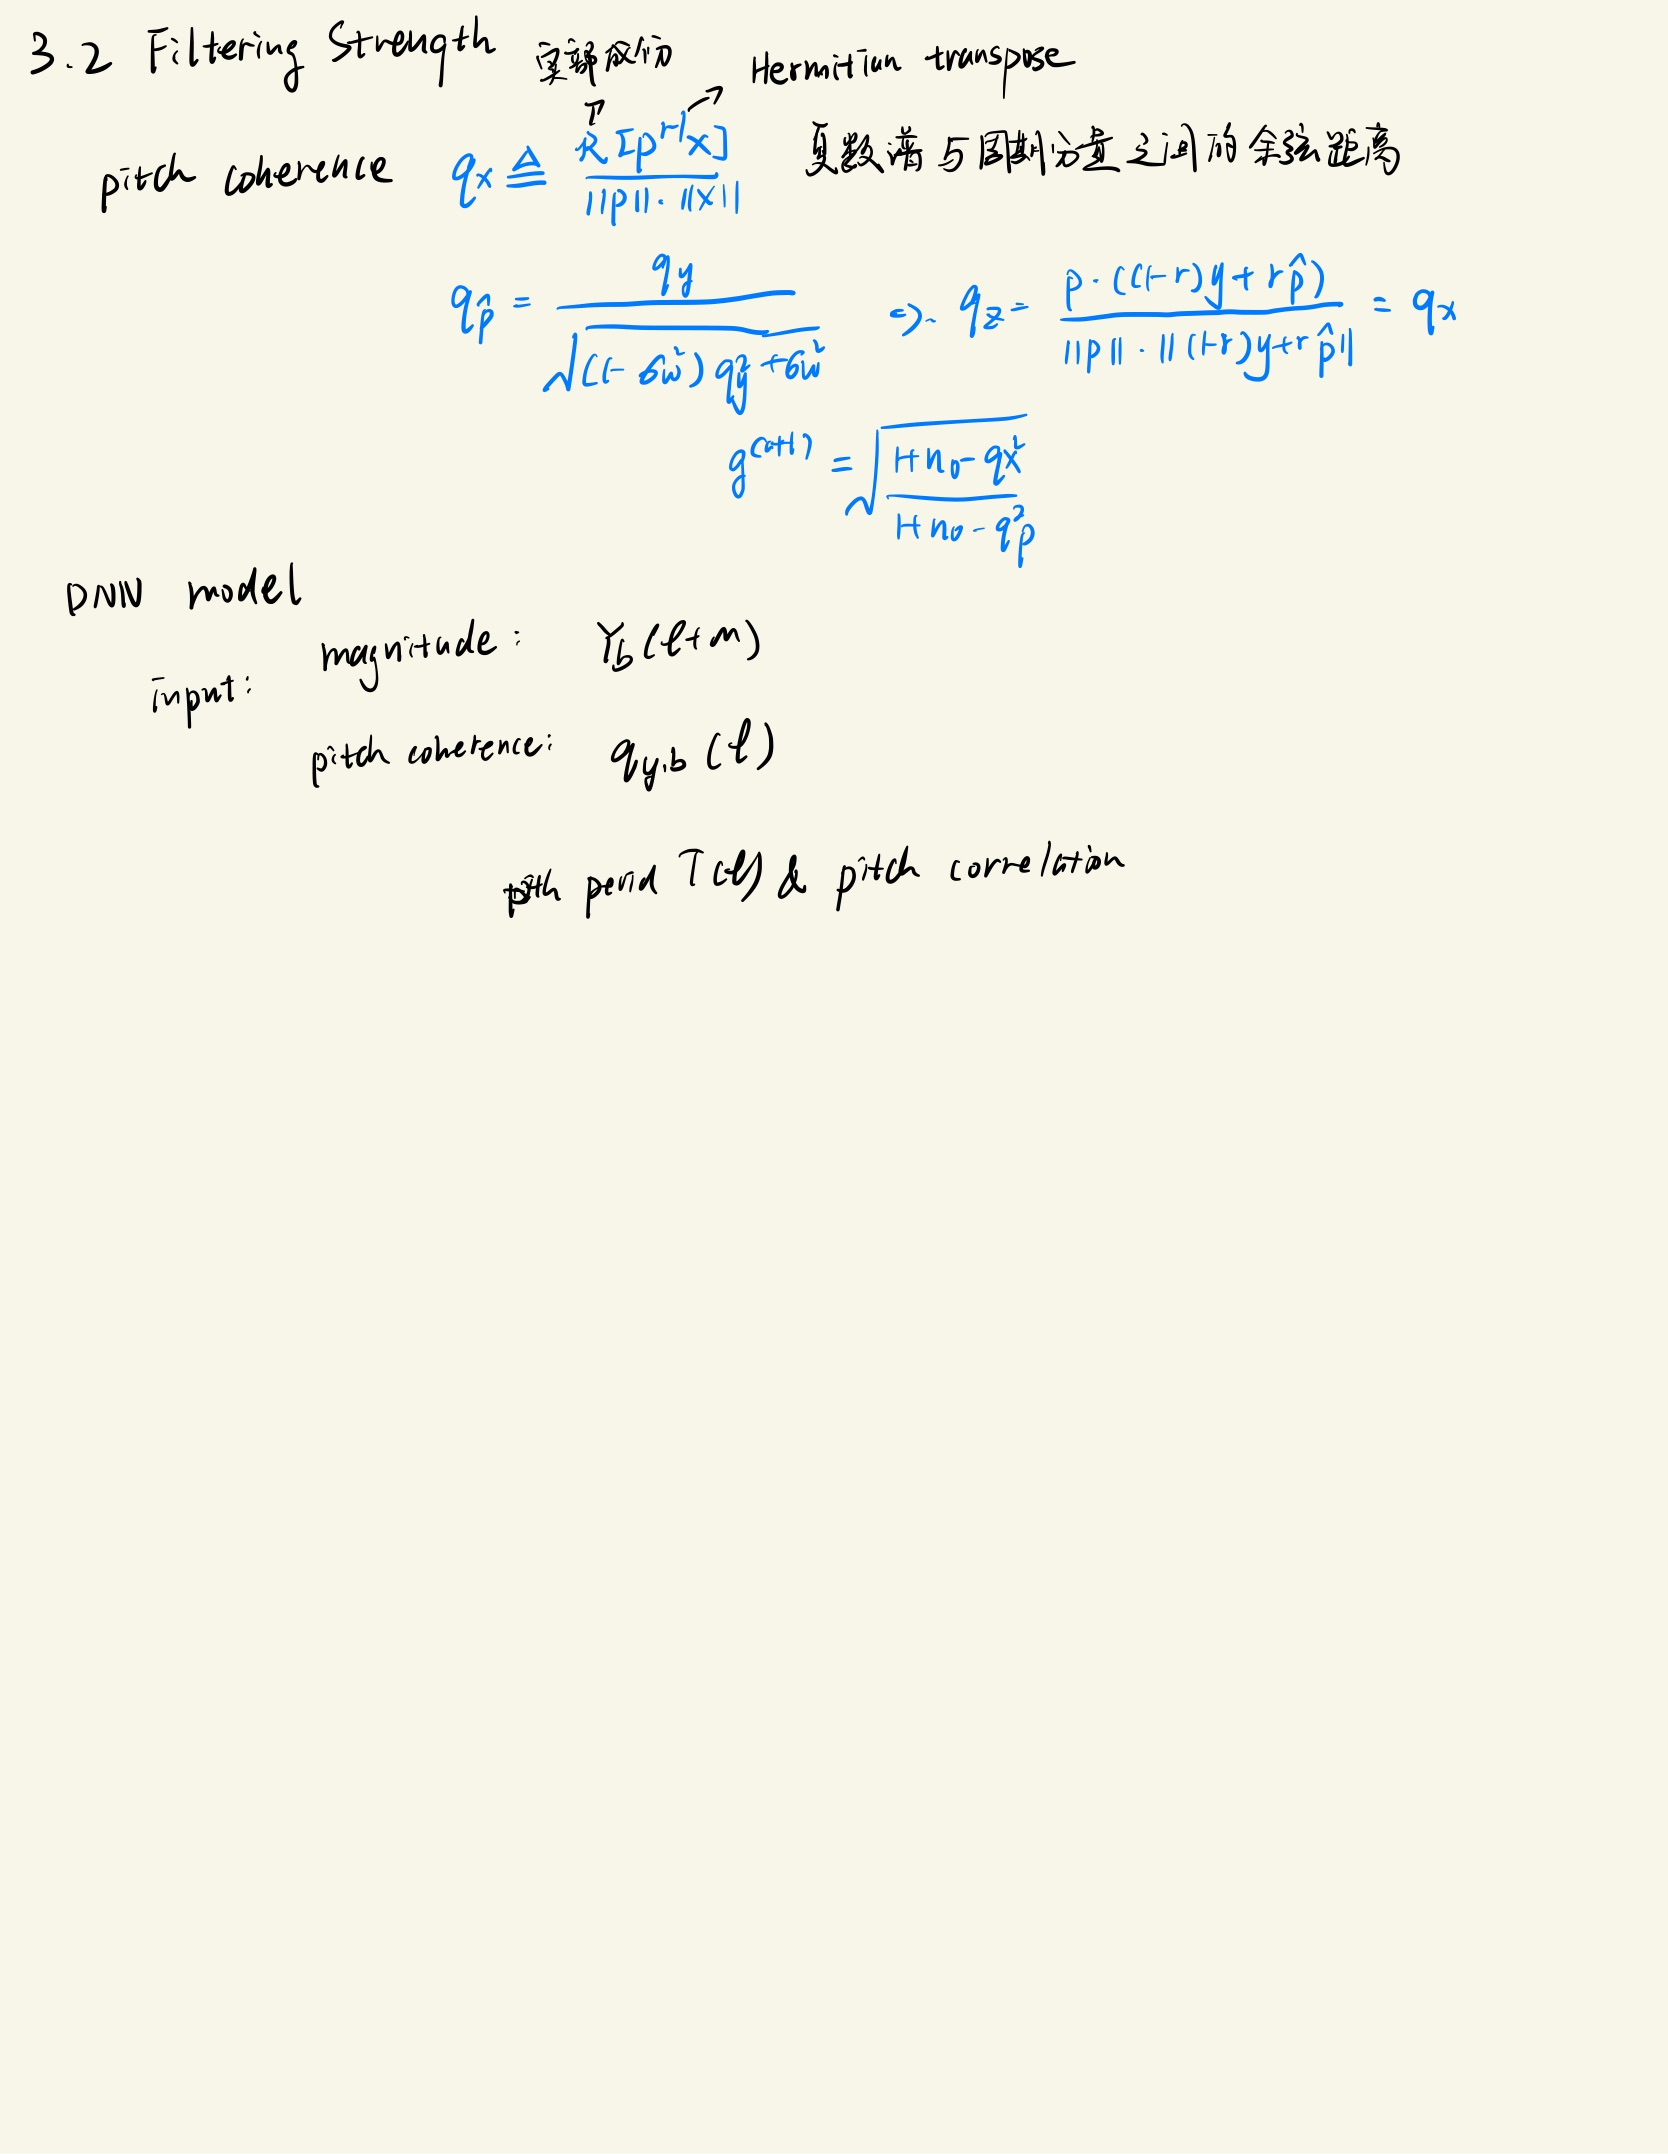 3.2 Filtering Strength 实部成份 Hermitian transpose
pitch coherence q_x ≜ R[p^H x] / ||p||·||x|| 复数谱与周期分量之间的余弦距离
q_p̂ = q_y / √((1-σ_w²) q_y² + σ_w²) => q_z = p·((1-r)y+r p̂) / ||p||·||(1-r)y+r p̂|| = q_x
g^(att) = √((1+n_0-q_x²) / (1+n_0-q_p²))
DNN model
magnitude: Y_b(ℓ+M)
input:
pitch coherence: q_y,b(ℓ)
pitch period T(ℓ) & pitch correlation